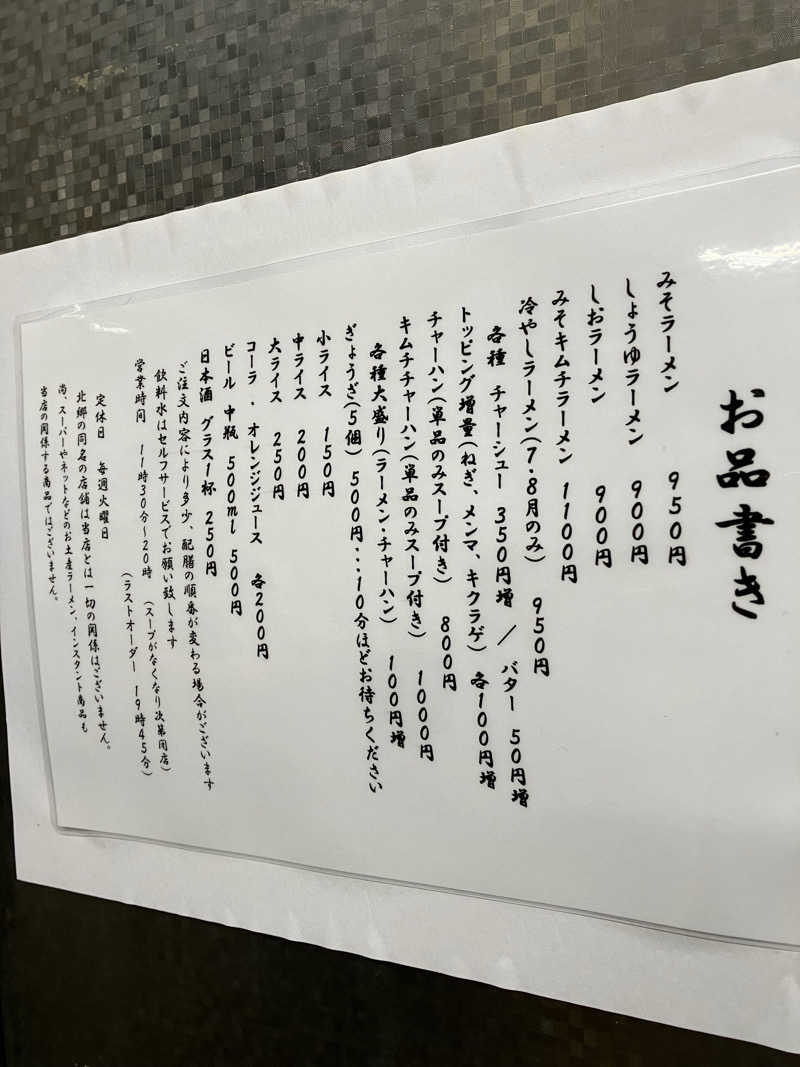 お品書き
みそラーメン 950円
しょうゆラーメン 900円
しおラーメン 900円
みそキムチラーメン 1100円
冷やしラーメン(7・8月のみ) 950円
各種 チャーシュー 350円増 / バター 50円増
トッピング増量(ねぎ、メンマ、キクラゲ) 各100円増
チャーハン(単品のみスープ付き) 800円
キムチチャーハン(単品のみスープ付き) 1000円
各種大盛り(ラーメン・チャーハン) 100円増
ぎょうざ(5個) 500円・・・10分ほどお待ちください
小ライス 150円
中ライス 200円
大ライス 250円
コーラ ・ オレンジジュース 各200円
ビール 中瓶 500ml 500円
日本酒 グラス1杯 250円
ご注文内容により多少、配膳の順番が変わる場合がございます
飲料水はセルフサービスでお願い致します
営業時間 11時30分~20時 (スープがなくなり次第閉店)
(ラストオーダー 19時45分)
定休日 毎週火曜日
北郷の同名の店舗は当店とは一切の関係はございません。
尚、スーパーやネットなどのお土産ラーメン、インスタント商品も
当店の関係する商品ではございません。